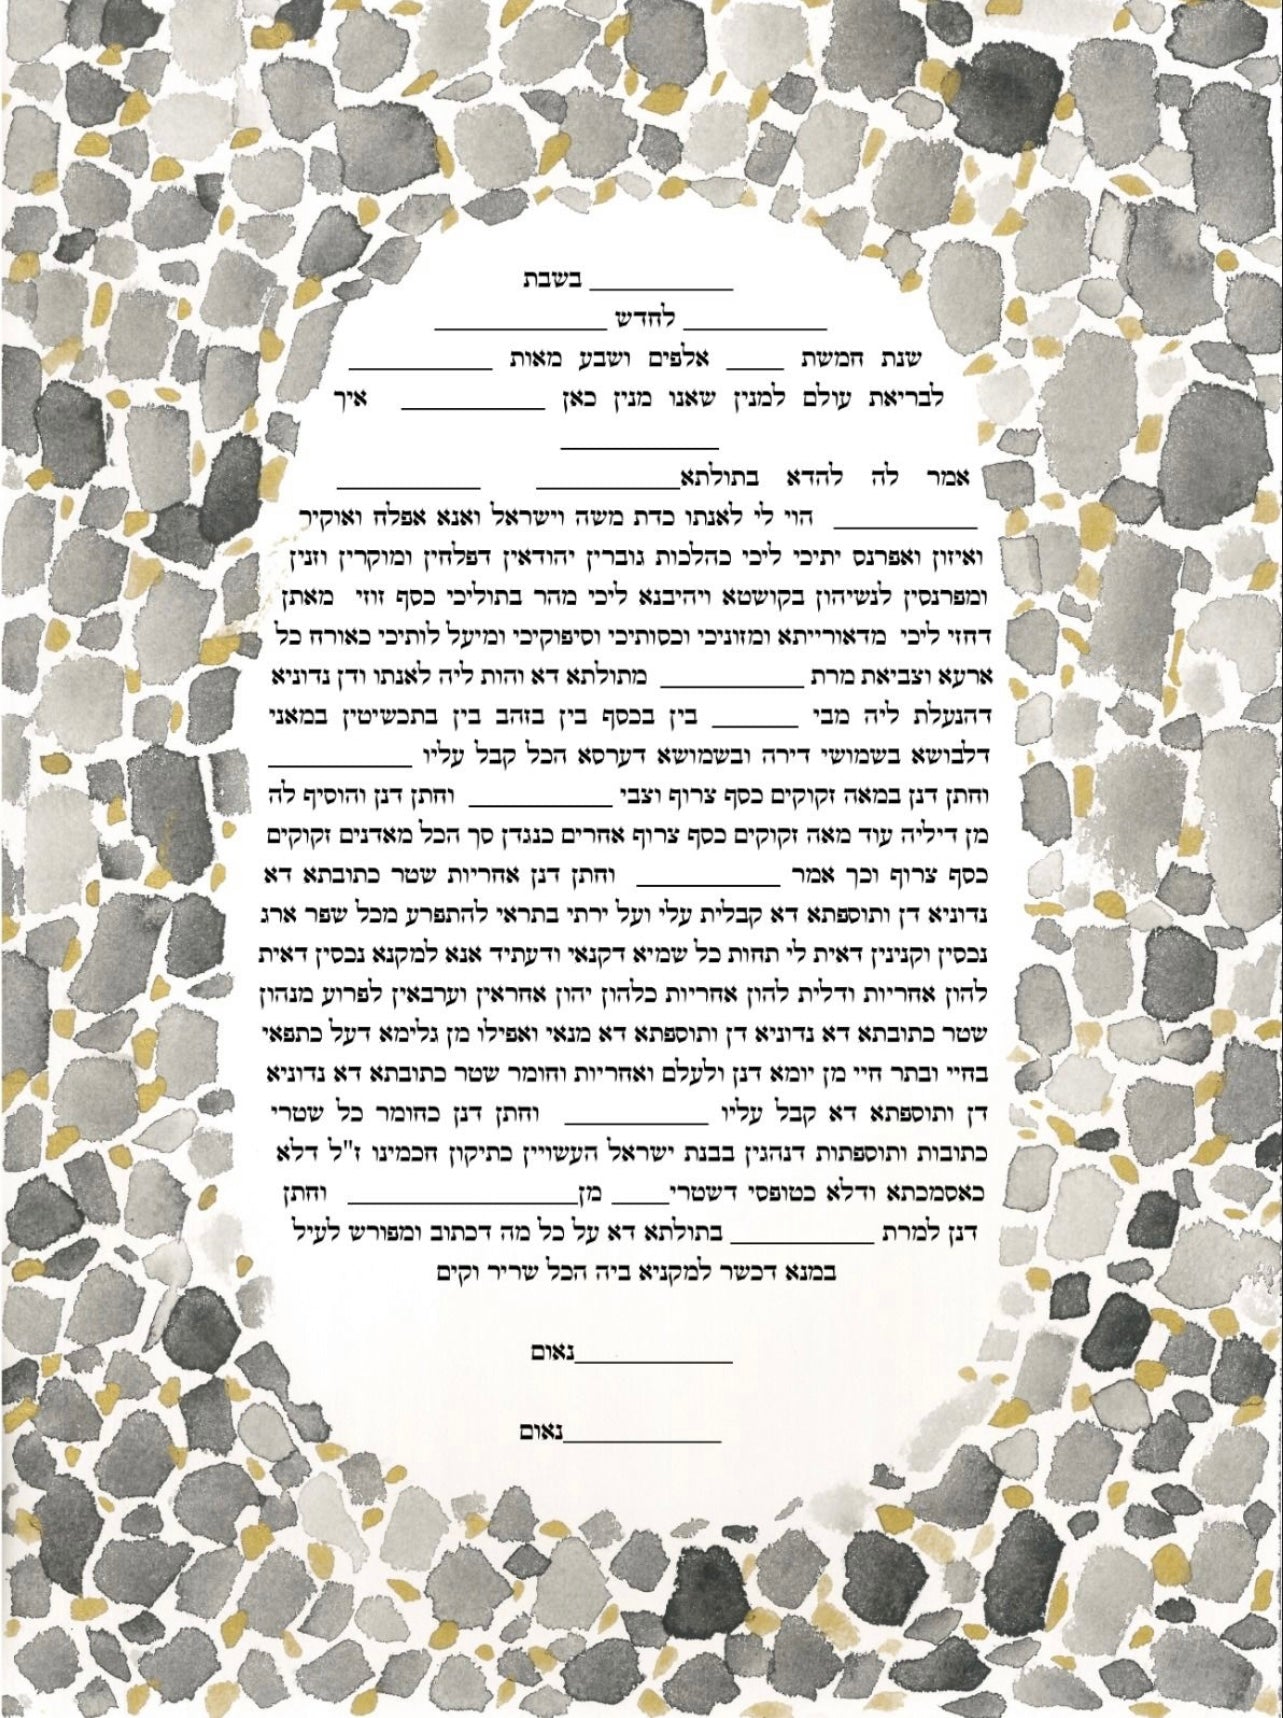 בשבת __________
__________ לחדש ____________
שנת חמשת ____ אלפים ושבע מאות __________
לבריאת עולם למנין שאנו מנין כאן __________ איך
___________
אמר לה להדא בתולתא__________ __________
__________ הוי לי לאנתו כדת משה וישראל ואנא אפלח ואוקיר
ואיזון ואפרנס יתיכי ליכי כהלכות גוברין יהודאין דפלחין ומוקרין וזנין
ומפרנסין לנשיהון בקושטא ויהיבנא ליכי מהר בתוליכי כסף זוזי מאתן
דחזי ליכי מדאורייתא ומזוניכי וכסותיכי וסיפוקיכי ומיעל לותיכי כאורח כל
ארעא וצביאת מרת __________ מתולתא דא והות ליה לאנתו ודן נדוניא
דהנעלת ליה מבי ______ בין בכסף בין בזהב בין בתכשיטין במאני
דלבושא בשמושי דירה ובשמושא דערסא הכל קבל עליו __________
וחתן דנן במאה זקוקים כסף צרוף וצבי __________ וחתן דנן והוסיף לה
מן דיליה עוד מאה זקוקים כסף צרוף אחרים כנגדן סך הכל מאדנים זקוקים
כסף צרוף וכך אמר __________ וחתן דנן אחריות שטר כתובתא דא
נדוניא דן ותוספתא דא קבלית עלי ועל ירתי בתראי להתפרע מכל שפר ארג
נכסין וקנינין דאית לי תחות כל שמיא דקנאי ודעתיד אנא למקנא נכסין דאית
להון אחריות ודלית להון אחריות כלהון יהון אחראין וערבאין לפרוע מנהון
שטר כתובתא דא נדוניא דן ותוספתא דא מנאי ואפילו מן גלימא דעל כתפאי
בחיי ובתר חיי מן יומא דנן ולעלם ואחריות וחומר שטר כתובתא דא נדוניא
דן ותוספתא דא קבל עליו __________ וחתן דנן כחומר כל שטרי
כתובות ותוספתות דנהגין בבנת ישראל העשויין כתיקון חכמינו ז"ל דלא
כאסמכתא ודלא כטופסי דשטרי____ מן________________ וחתן
דנן למרת __________ בתולתא דא על כל מה דכתוב ומפורש לעיל
במנא דכשר למקניא ביה הכל שריר וקים
נאום___________
נאום___________